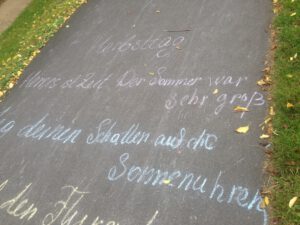 Herbsttag
Herr es ist Zeit Der Sommer war
sehr groß
g deinen Schatten auf die
Sonnenuhren
den Fluren